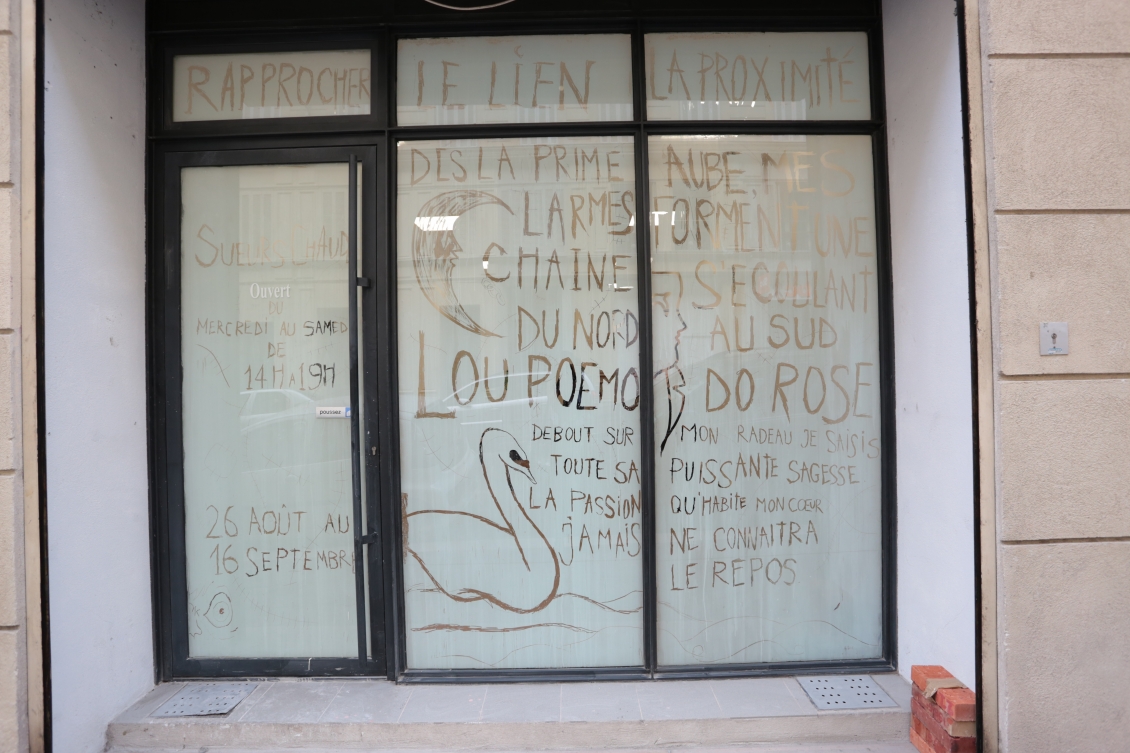 RAPPROCHER LE LIEN LA PROXIMITÉ
SUEURS CHAUD
Ouvert
DU
MERCREDI AU SAMED
DE
14H À 19H
poussez
26 AOÛT AU
16 SEPTEMBRE
DIS LA PRIME AUBE, MES
LARMES FORMENT UNE
CHAINE S'ECOULANT
DU NORD AU SUD
LOU POEMO DO ROSE
DEBOUT SUR MON RADEAU JE SAISIS
TOUTE SA PUISSANTE SAGESSE
LA PASSION QU'HABITE MON CŒUR
JAMAIS NE CONNAITRA
LE REPOS